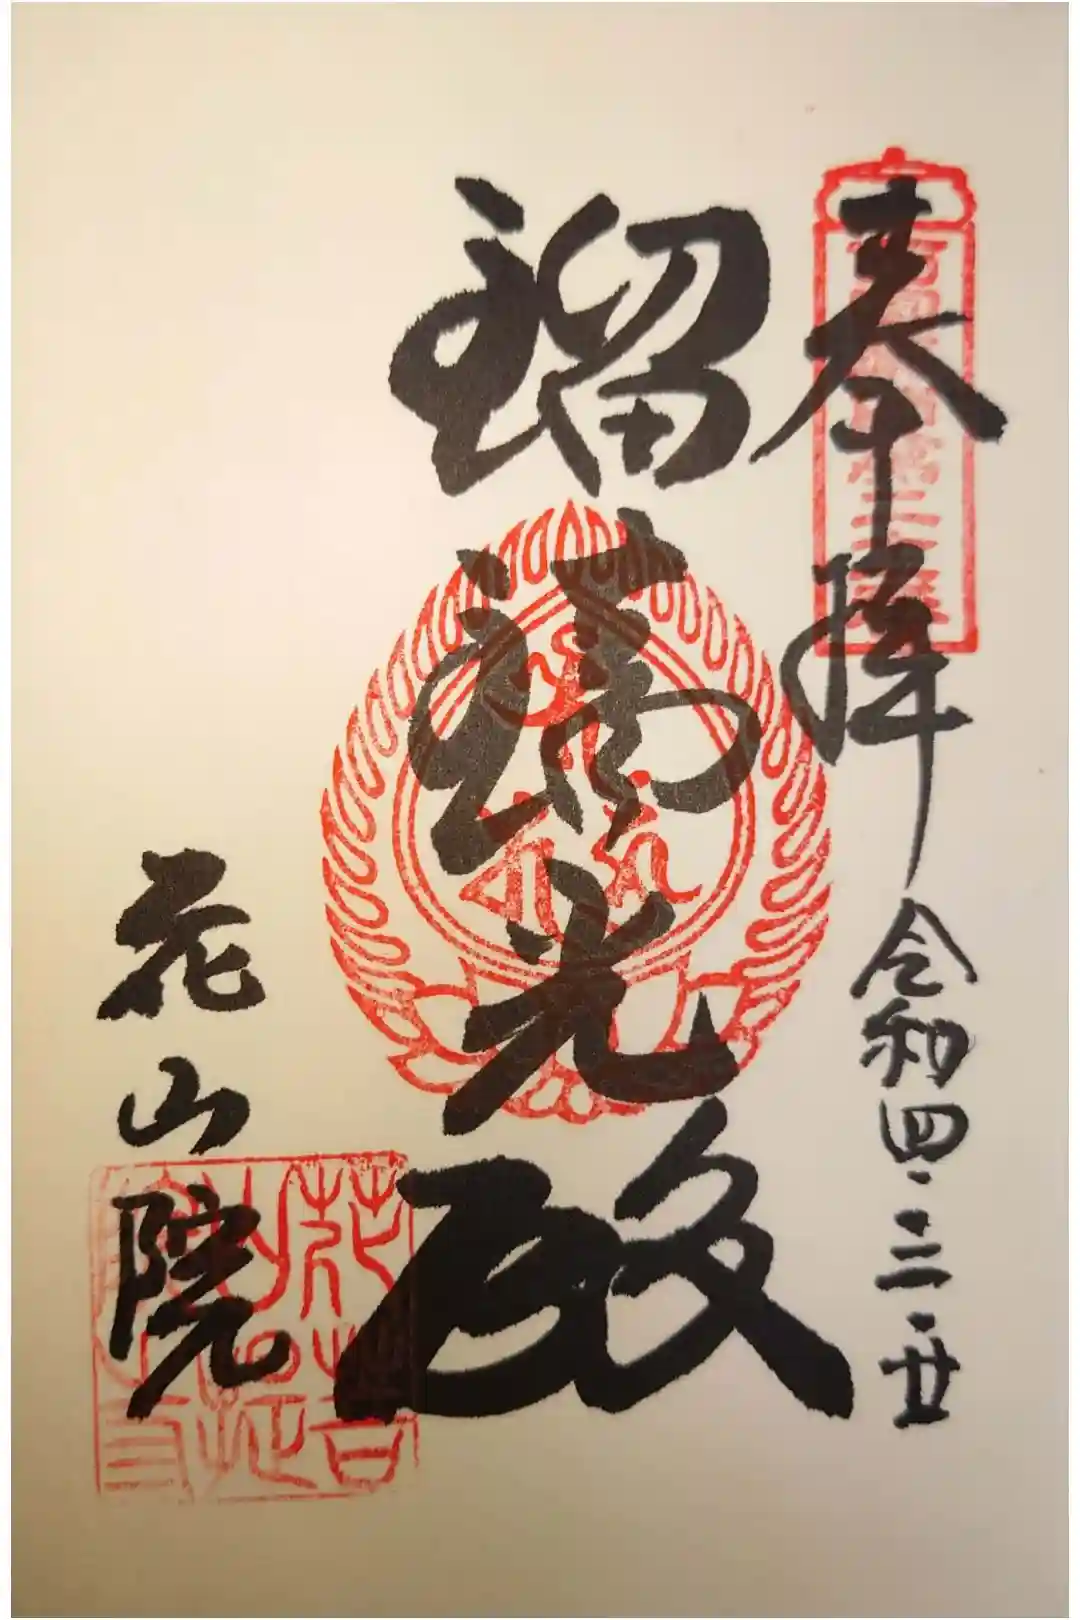 奉拝
令和四・三・廿
瑠璃光殿
花山院